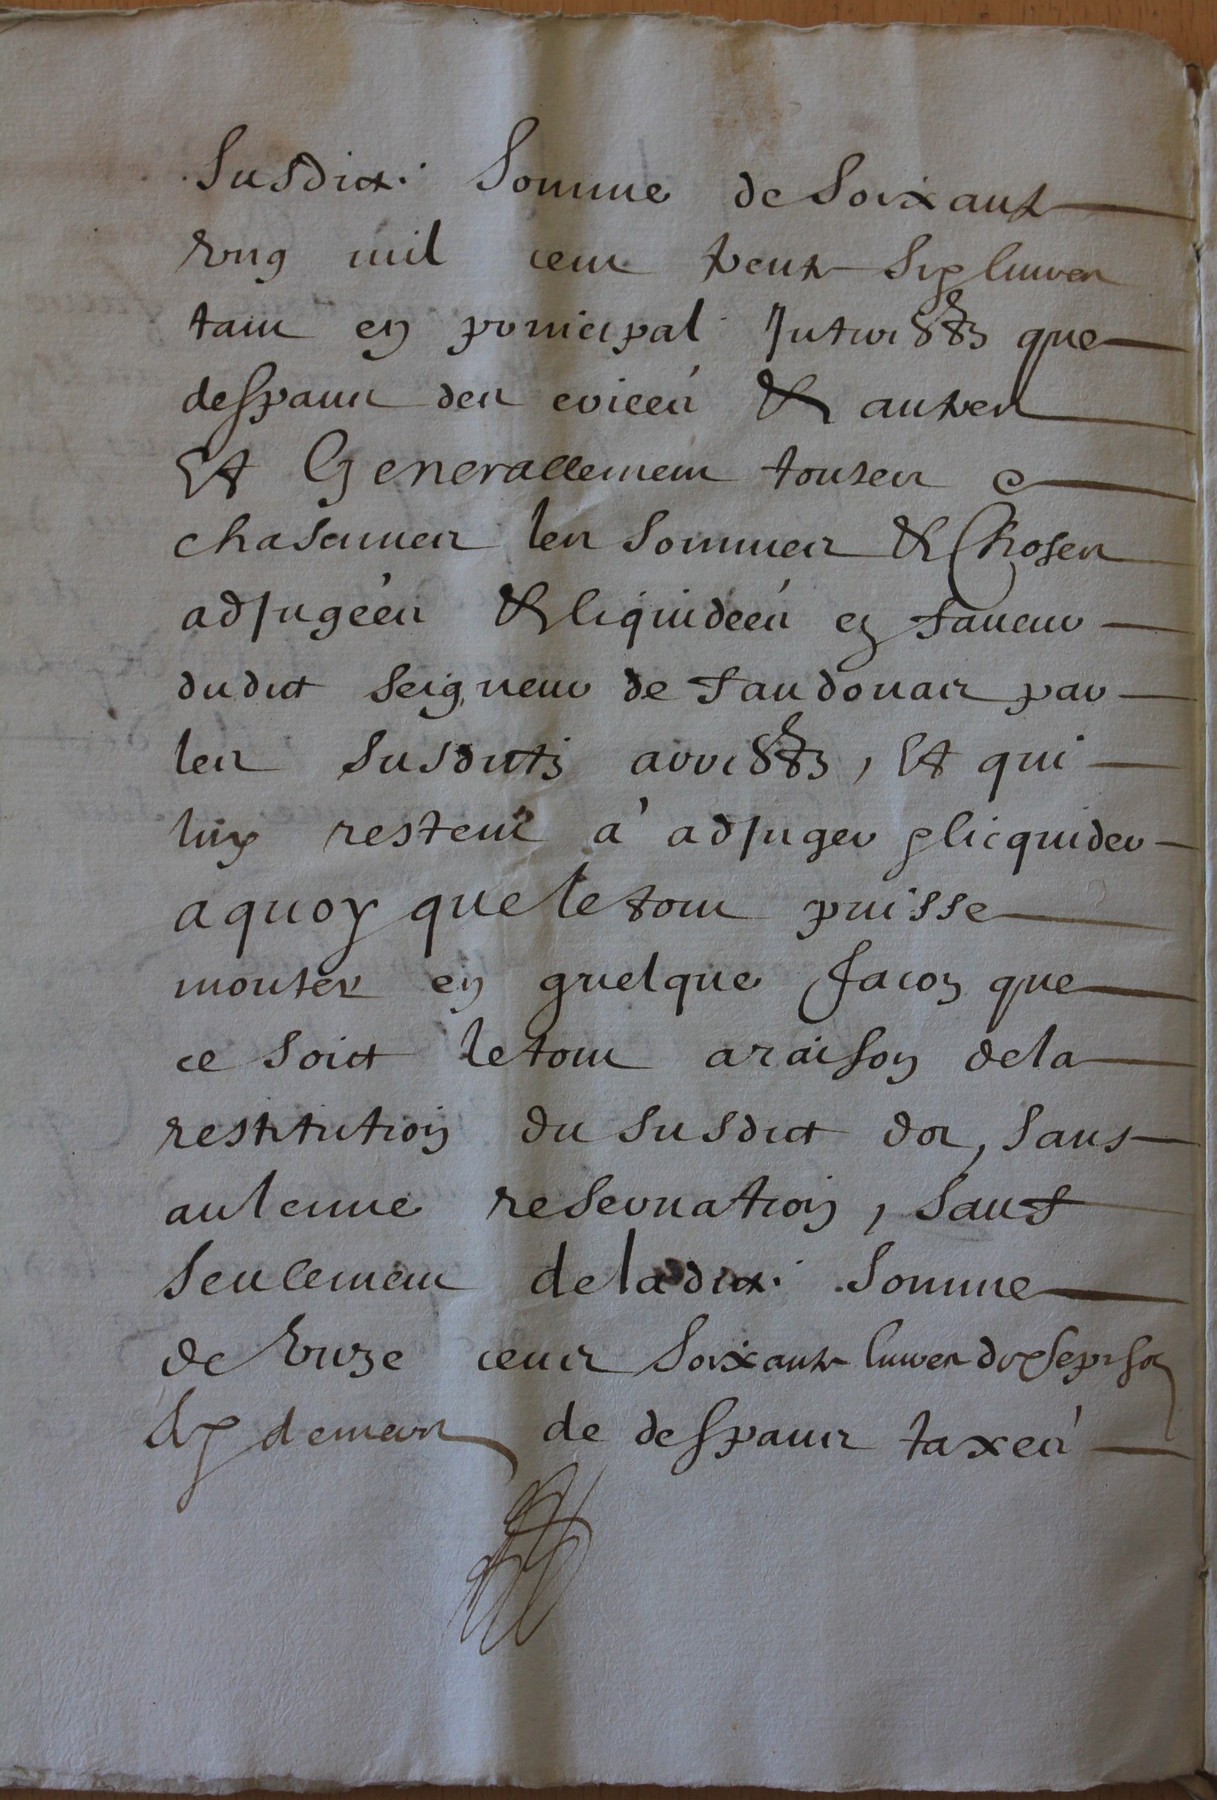 susdict. somme de soixant
ung mil cent trent six livres
tant en principal Interestz que
despans des epicés & autres
Et Generallement toutes e
chascunes les sommes & Choses
adjugéés & liquidéés en faveur
dudict seigneur de faudouas par
les susdictz arrestz, Et qui
luy restent a adjuger e licquider
a quoy que le tout puisse
monter en quelque facon que
ce soict le tout a raison de la
restitution du susdict dot, sans
aulcune reservation, sauf
seulement de ladict. somme
de unze cents soixant livres dix sept solz
six deniers de despans taxés